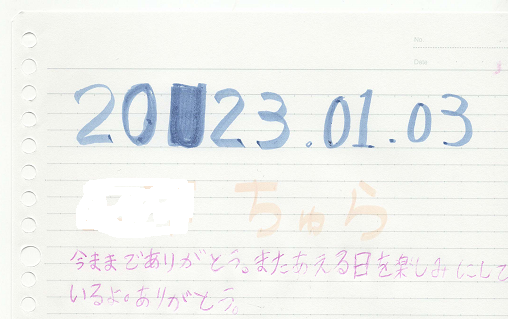 No.
Date
2023.01.03
ちゅら
今まままでありがとう。またあえる日を楽しみにして
いるよ。ありがとう。